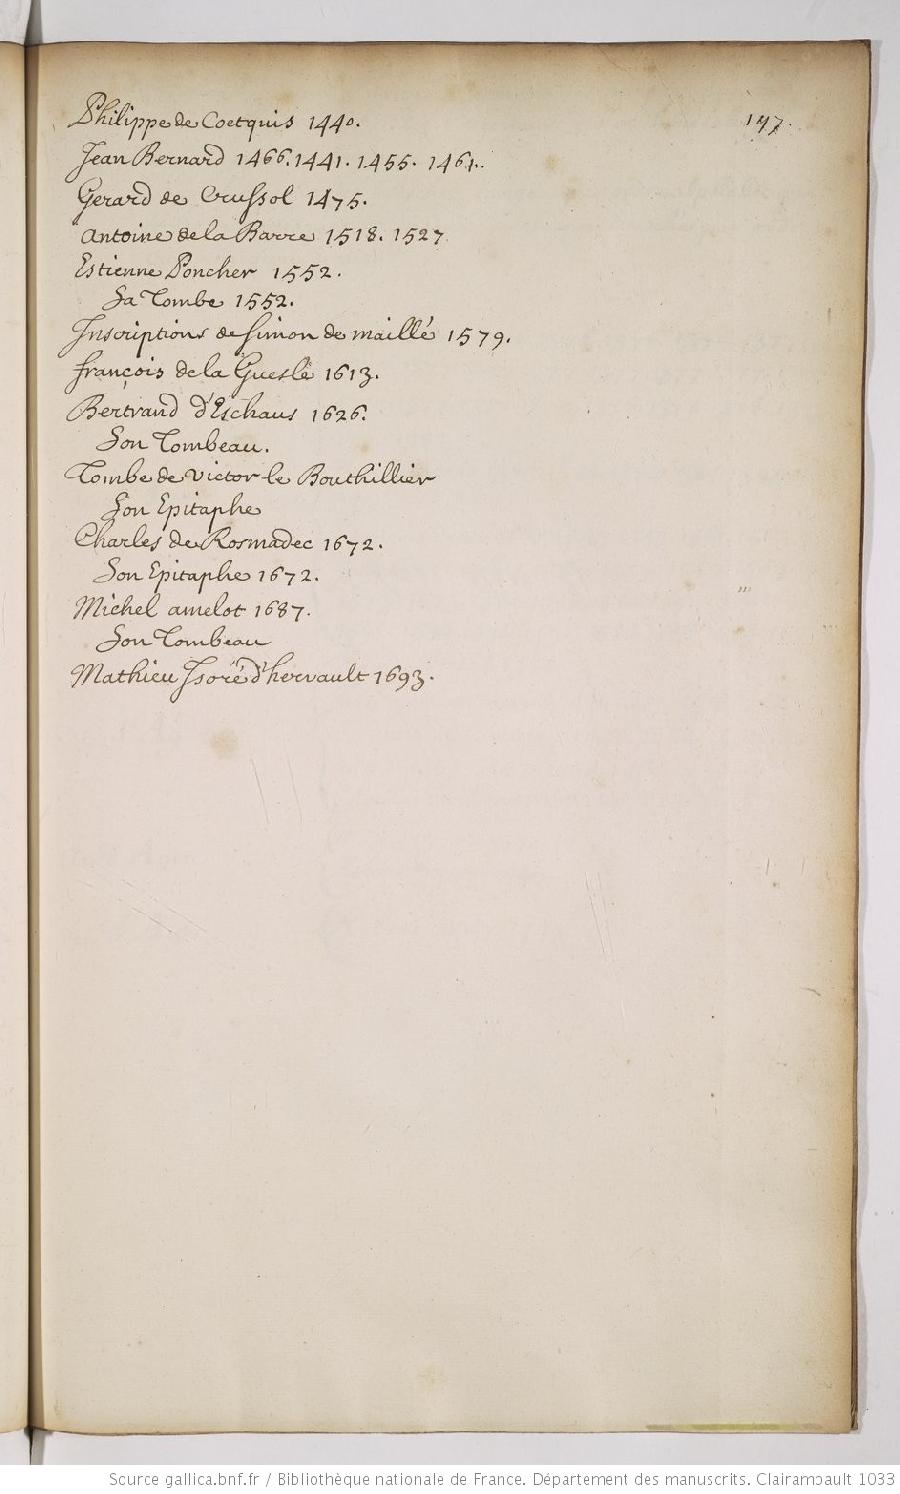 147.
Philippe de Coetquis 1440.
Jean Bernard 1466. 1441. 1455. 1461.
Gerard de Crussol 1475.
Antoine de la Barre 1518. 1527
Estienne Poncher 1552.
Sa Tombe 1552.
Inscriptions de Simon de maillé 1579.
françois de la Guesle 1613.
Bertrand d'Eschaus 1626.
Son Tombeau.
Tombe de Victor le Bouthillier
Son Epitaphe
Charles de Rosmadec 1672.
Son Epitaphe 1672.
Michel amelot 1687.
Son Tombeau
Mathieu Isoré d'hervault 1693.
Source gallica.bnf.fr / Bibliothèque nationale de France. Département des manuscrits. Clairambault 1033